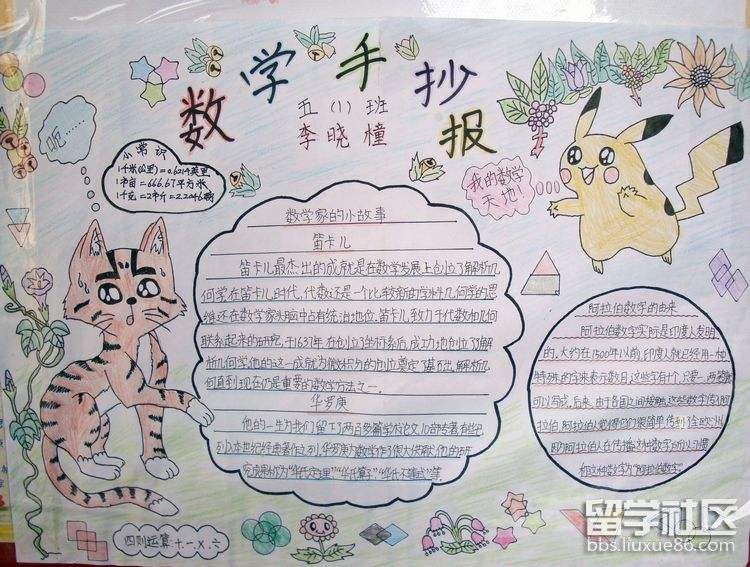 数学手抄报
五(1)班
李晓橦
呃……
小常识
1千米(公里)=0.6214英里
1市亩=666.67平方米
1千克=2市斤=2.2046磅
我的数学
天地!
数学家的小故事
笛卡儿
笛卡儿最杰出的成就是在数学发展上创立了解析几
何学在笛卡儿时代,代数还是一个比较新的学科,几何学的思
维还在数学家头脑中占有统治地位。笛卡儿致力于代数和几何
联系起来的研究,于1637年,在创立了坐标系后,成功地创立了解
析几何学。他的这一成就为微积分的创立奠定了基础。解析几
何直到现在仍是重要的数学方法之一。
华罗庚
他的一生为我们留下了两百多篇学术论文
阿拉伯数字的由来
阿拉伯数字实际是印度人发明
的,大约在1500年以前,印度人就已经用一种
特殊的字来表示数目,这些字有10个,只要一两笔就
可以写成。后来,
和这种数字为“阿拉伯数字”
四则运算:+、-、×、÷
留学社区
bbs.liuxue86.com